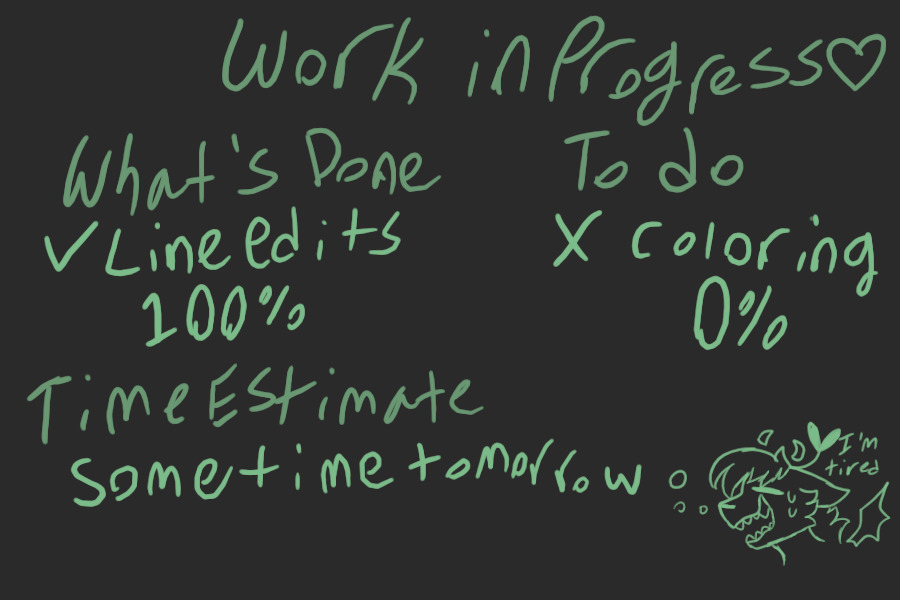 Work in Progress♡
What's Done
✓ Line edits
100%
To do
X coloring
0%
Time Estimate
sometime tomorrow
I'm
tired